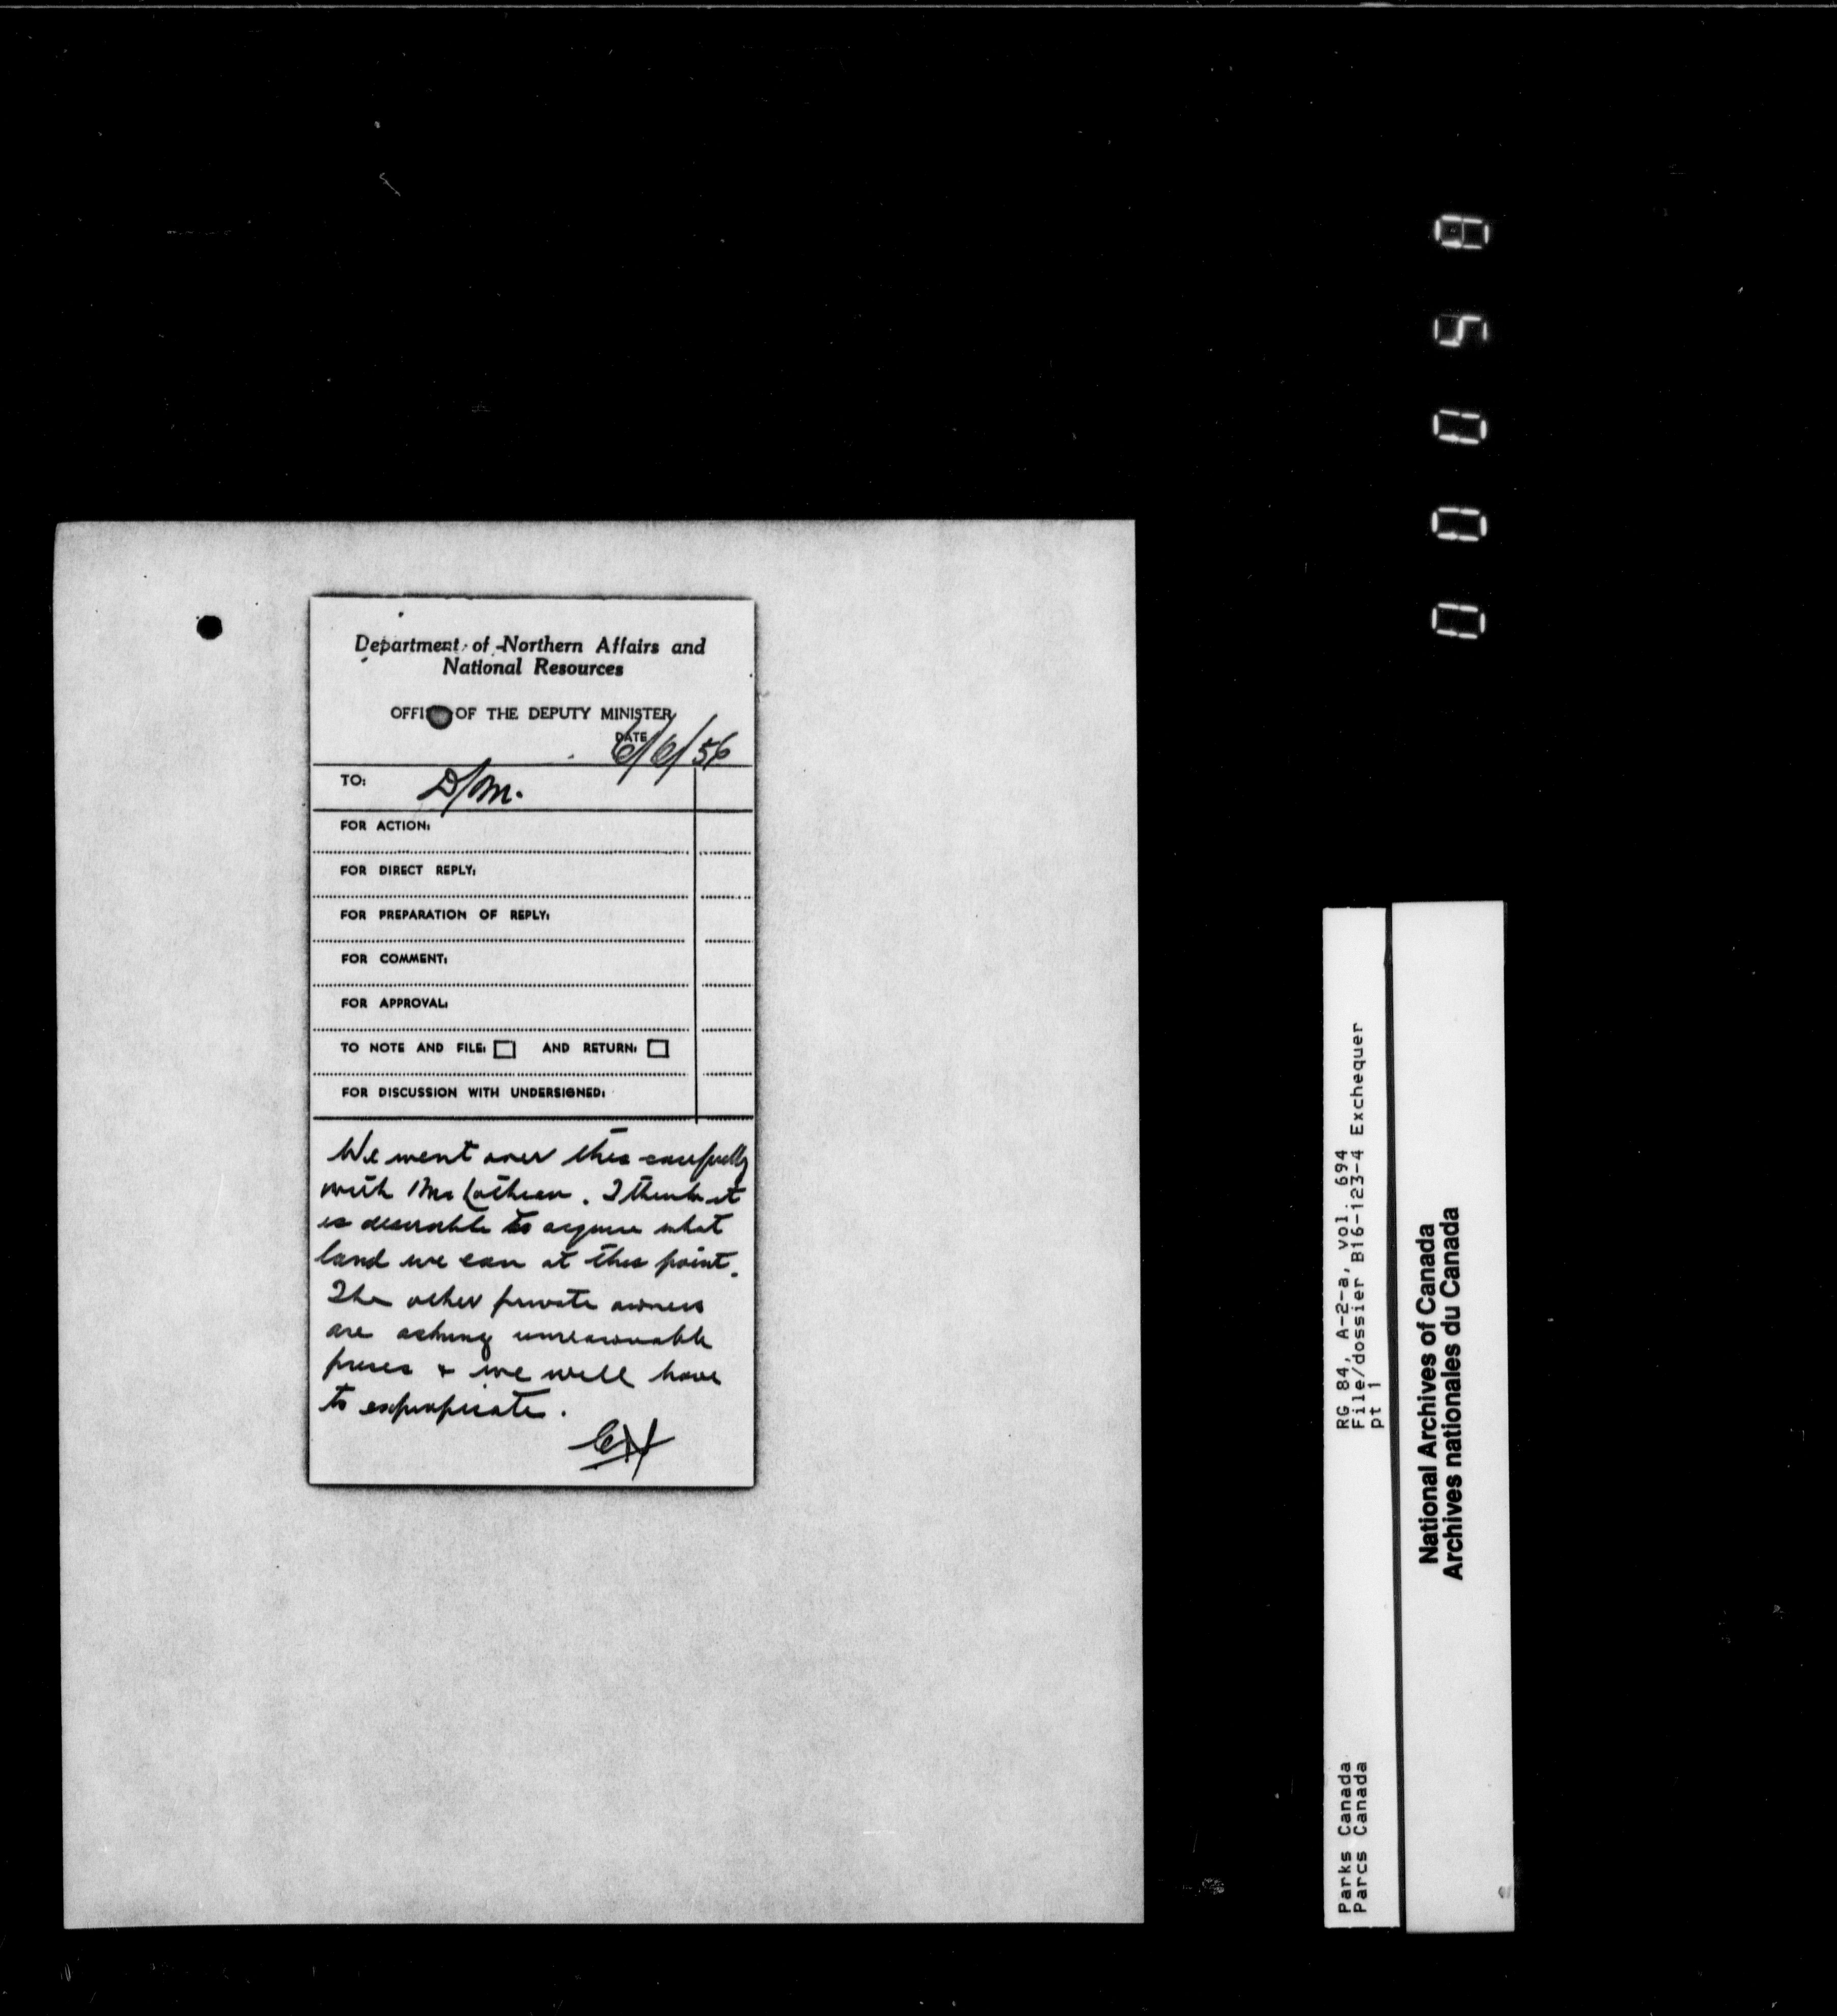 Department of Northern Affairs and
National Resources
OFFI OF THE DEPUTY MINISTER
DATE 6/6/56
TO: D/M.
FOR ACTION:
FOR DIRECT REPLY:
FOR PREPARATION OF REPLY:
FOR COMMENT:
FOR APPROVAL:
TO NOTE AND FILE: AND RETURN:
FOR DISCUSSION WITH UNDERSIGNED:
We went over this carefully
with . I think it
is desirable to acquire what
land we can at this point.
The other private owners
are asking unreasonable
prices & we will have
to expropriate.
RG 84, A-2-a, vol. 694
File/dossier B16-123-4 Exchequer
pt 1
Parks Canada
Parcs Canada
National Archives of Canada
Archives nationales du Canada